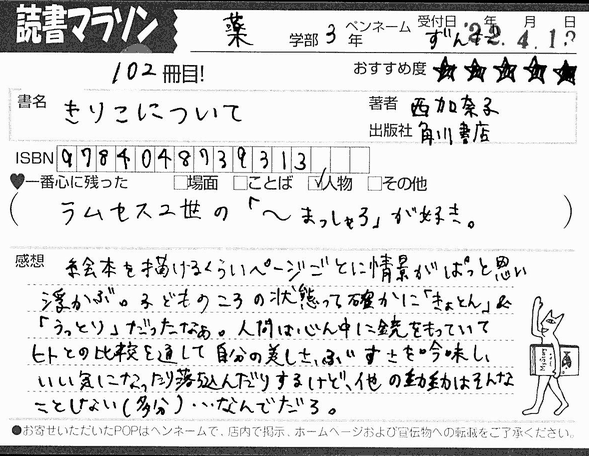 読書マラソン 薬 学部 3 年 ペンネーム ずんだ 受付日 '22年 4月 1 日
102 冊目! おすすめ度 ★★★★★
書名 きりこについて 著者 西加奈子
出版社 角川書店
ISBN 9784048739313
♥一番心に残った □場面 □ことば ☑人物 □その他
( ラムセス2世の「〜まっしゃろ」が好き。 )
感想 絵本を描けるくらいページごとに情景がぱっと思い
浮かぶ。子どものころの状態って確かに「きょとん」&
「うっとり」だったなぁ。人間は心ん中に鏡をもっていて
ヒトとの比較を通して自分の美しさ、ぶすさを吟味し、
いい気になったり落ち込んだりするけど、他の動動はそんな
ことしない(多分)…なんでだろ。
●お寄せいただいたPOPはペンネームで、店内で掲示、ホームページおよび宣伝物への転載をご了承ください。